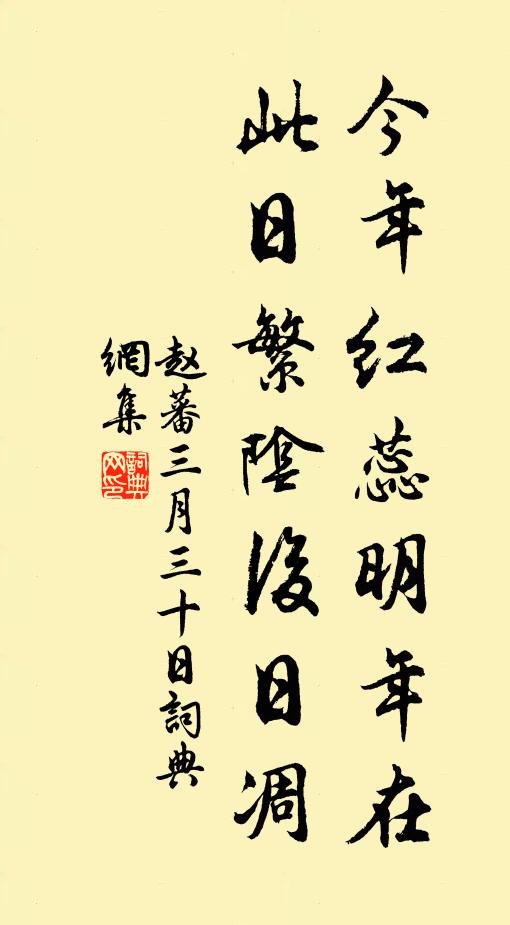 今年红蕊明年在
此日繁陰後日凋
赵蕃三月三十日詞典
網集
詞典网印